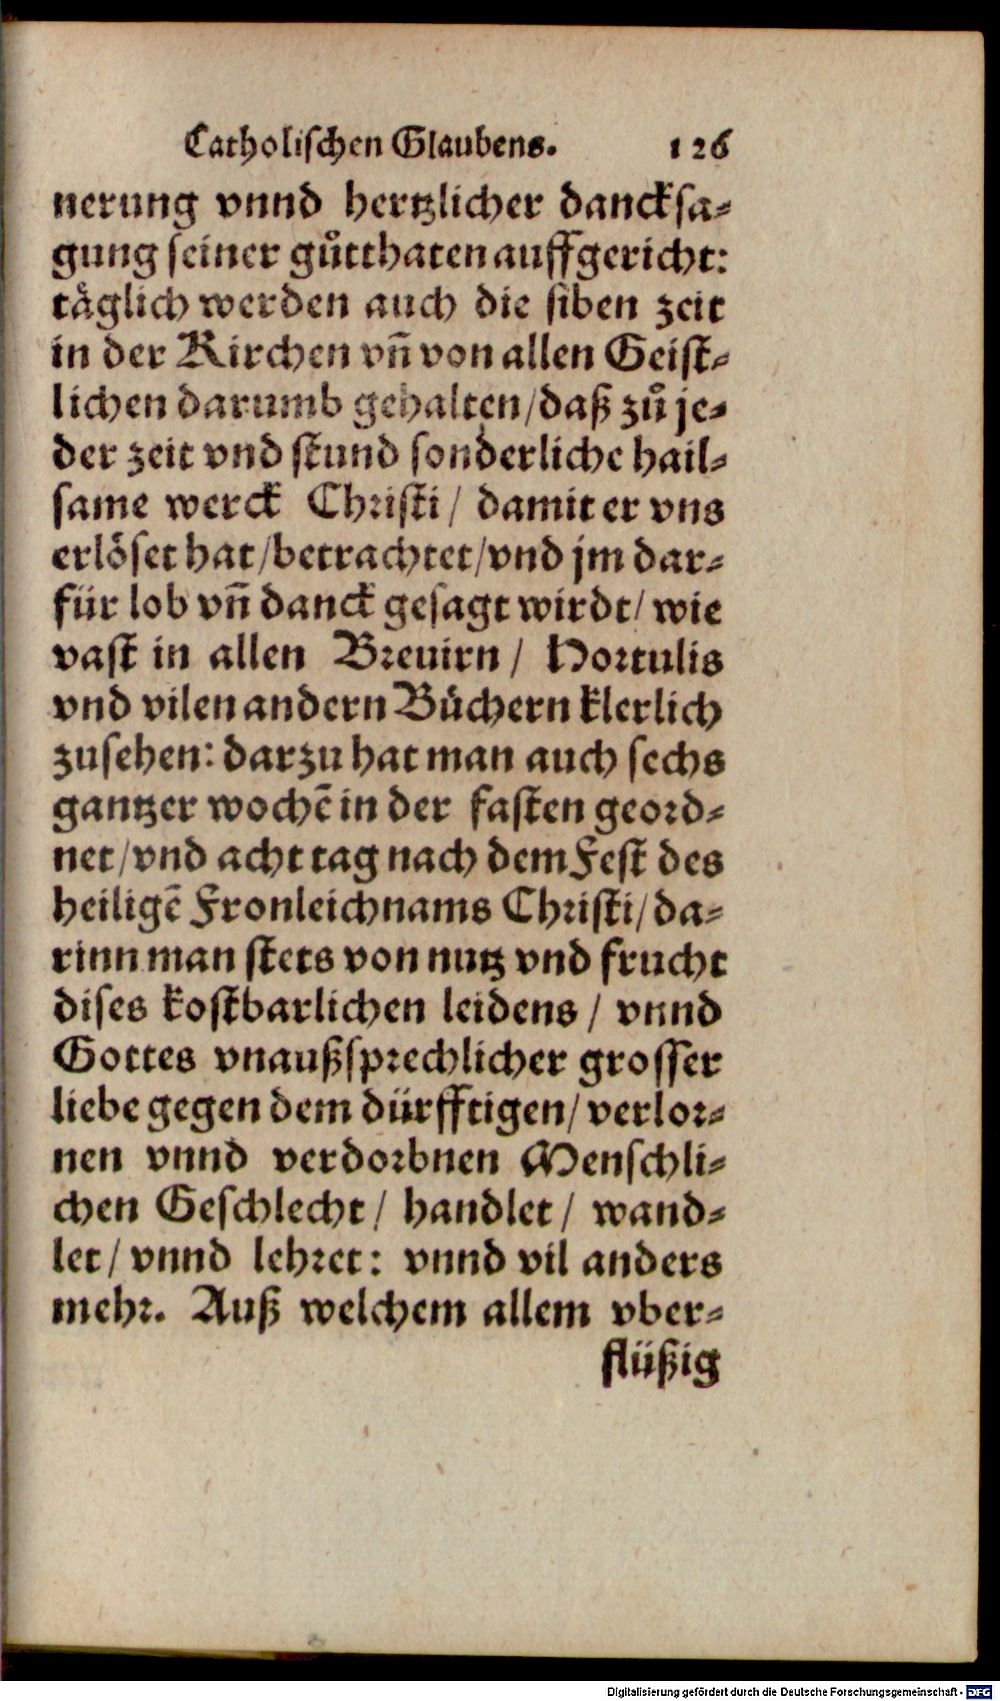 Catholiſchen Glaubens. 126
nerung vnnd hertzlicher danckſa⸗
gung ſeiner gůtthaten auffgericht:
täglich werden auch die ſiben zeit
in der Kirchen vn̄ von allen Geiſt⸗
lichen darumb gehalten/daß zů je⸗
der zeit vnd ſtund ſonderliche hail⸗
ſame werck Chriſti/ damit er vns
erlöſet hat/betrachtet/vnd jm dar⸗
für lob vn̄ danck geſagt wirdt/ wie
vaſt in allen Breuirn / Hortulis
vnd vilen andern Bůchern klerlich
zuſehen: darzu hat man auch ſechs
gantzer wochē in der faſten geord⸗
net/vnd acht tag nach dem Feſt des
heiligē Fronleichnams Chriſti/da⸗
rinn man ſtets von nutz vnd frucht
diſes koſtbarlichen leidens / vnnd
Gottes vnaußſprechlicher groſſer
liebe gegen dem dürfftigen/ verlor⸗
nen vnnd verdorbnen Menſchli⸗
chen Geſchlecht/ handlet/ wand⸗
let/ vnnd lehret: vnnd vil anders
mehr. Auß welchem allem vber⸗
flüßig
Digitalisierung gefördert durch die Deutsche Forschungsgemeinschaft - DFG